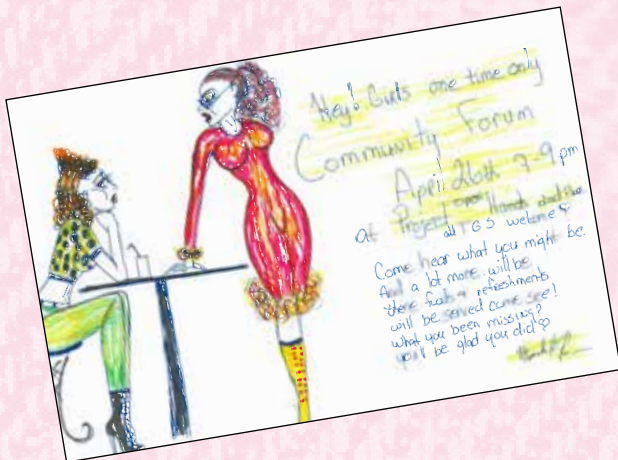 Hey! Girls one time only
Community Forum
April 26th 7-9 pm
at Project open Hand
all TGS welcome
Come hear what you might be.
And a lot more will be
there food & refreshments
will be served come see!
what you been missing?
you'll be glad you did